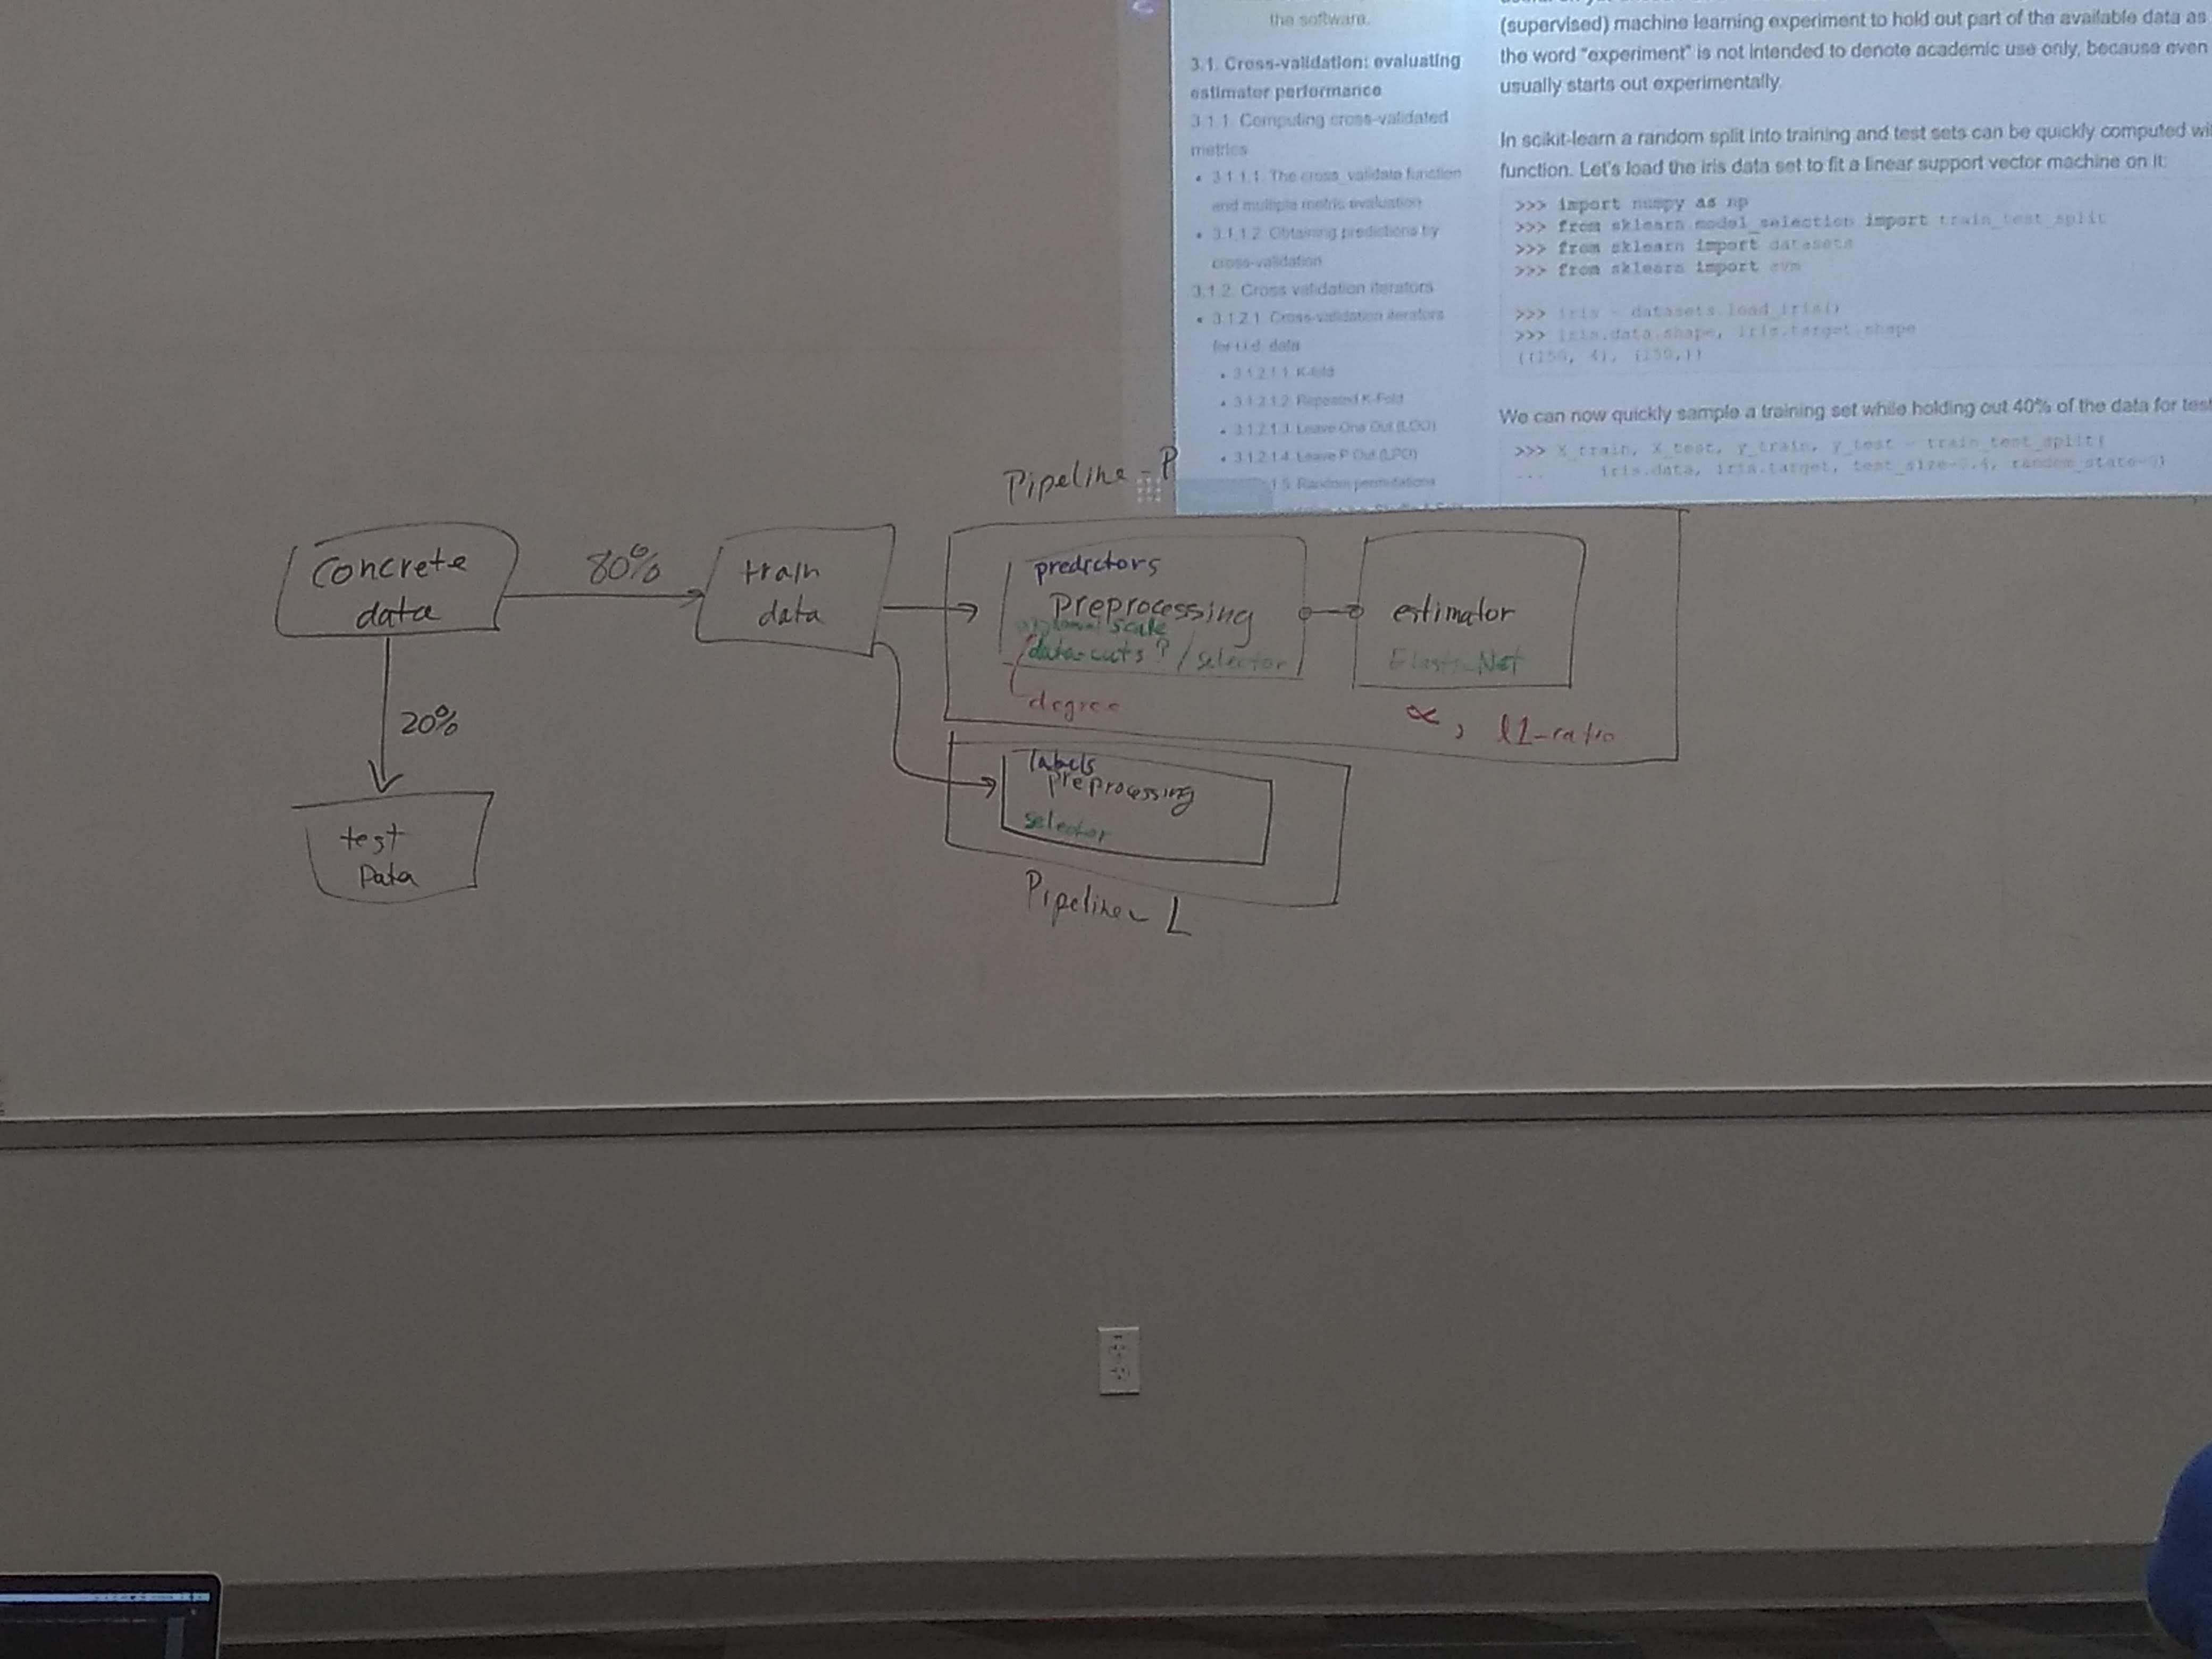 the software.
3.1. Cross-validation: evaluating
estimator performance
3.1.1. Computing cross-validated
metrics
3.1.1.1. The cross_validate function
and multiple metric evaluation
3.1.1.2. Obtaining predictions by
cross-validation
3.1.2. Cross validation iterators
3.1.2.1. Cross-validation iterators
for i.i.d. data
3.1.2.1.1. K-fold
3.1.2.1.2. Repeated K-Fold
3.1.2.1.3. Leave One Out (LOO)
3.1.2.1.4. Leave P Out (LPO)
1.5. Random permutations
(supervised) machine learning experiment to hold out part of the available data as
the word "experiment" is not intended to denote academic use only, because even
usually starts out experimentally.
In scikit-learn a random split into training and test sets can be quickly computed wi
function. Let's load the iris data set to fit a linear support vector machine on it:
>>> import numpy as np
>>> from sklearn.model_selection import train_test_split
>>> from sklearn import datasets
>>> from sklearn import svm
>>> iris = datasets.load_iris()
>>> iris.data.shape, iris.target.shape
((150, 4), (150,))
We can now quickly sample a training set while holding out 40% of the data for test
>>> X_train, X_test, y_train, y_test = train_test_split(
... iris.data, iris.target, test_size=0.4, random_state=0)
Pipeline - P
Concrete
data
80%
train
data
predictors
Preprocessing
scale
data-cuts? / selector
degree
estimator
Elastic_Net
α, l1-ratio
20%
test
Data
labels
preprocessing
selector
Pipeline - L